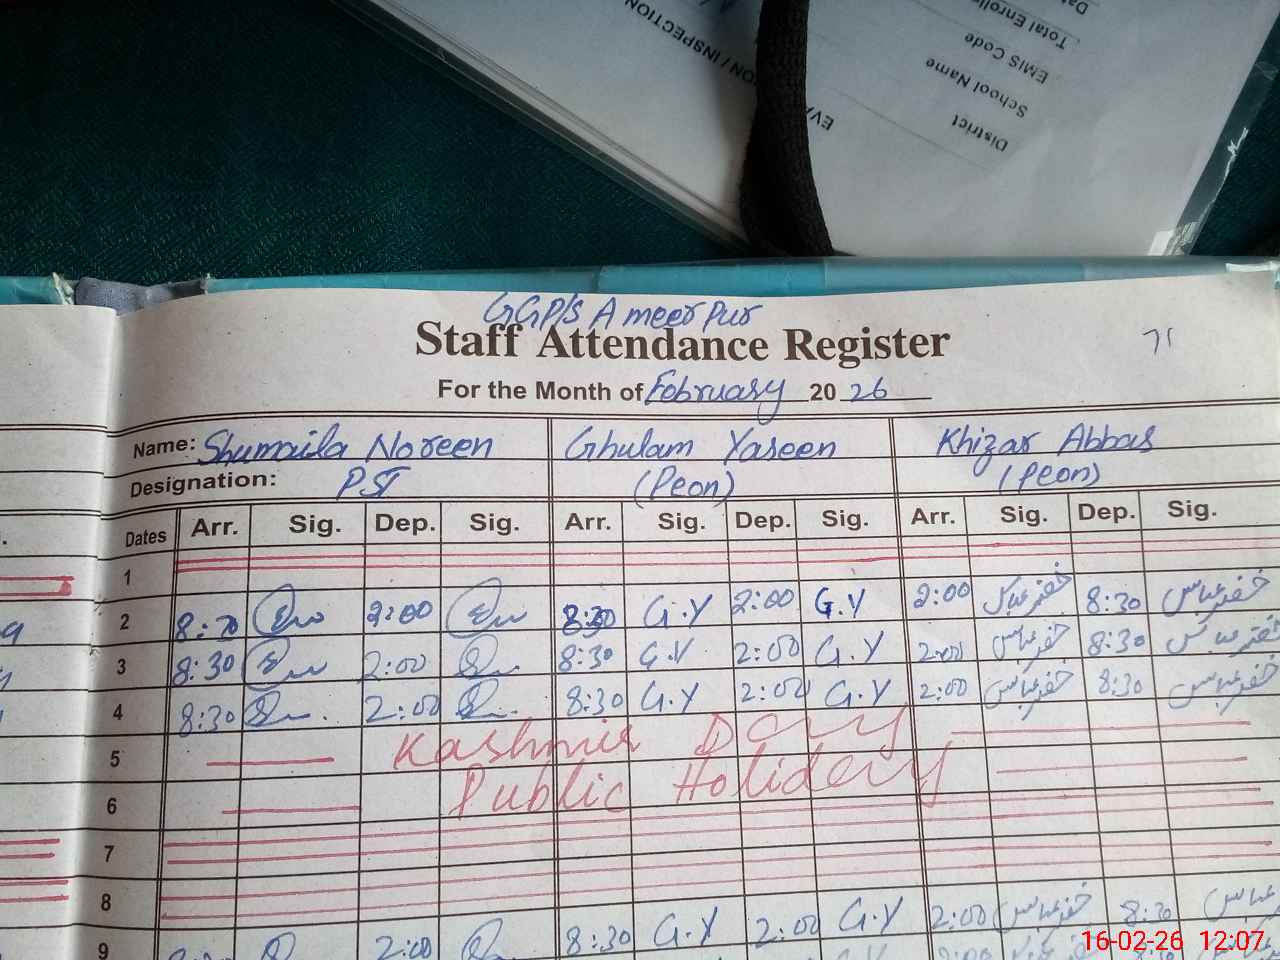 EVA
ON / INSPECTION
District
School Name
EMIS Code
Total Enroll
Da
GGP/S Ameerpur
Staff Attendance Register
71
For the Month of February 2026
Name: Shumaila Noreen Ghulam Yaseen Khizar Abbas
Designation: PST (Peon) (Peon)
Dates Arr. Sig. Dep. Sig. Arr. Sig. Dep. Sig. Arr. Sig. Dep. Sig.
1
2 8:30 2:00 8:30 G.Y 2:00 G.Y 2:00 خضر عباس 8:30 خضر عباس
3 8:30 2:00 8:30 G.Y 2:00 G.Y 2:00 خضر عباس 8:30 خضر عباس
4 8:30 2:00 8:30 G.Y 2:00 G.Y 2:00 خضر عباس 8:30 خضر عباس
5 Kashmir Day
6 Public Holiday
7
8
9 8:30 2:00 8:30 G.Y 2:00 G.Y 2:00 خضر عباس 8:30 عباس
16-02-26 12:07